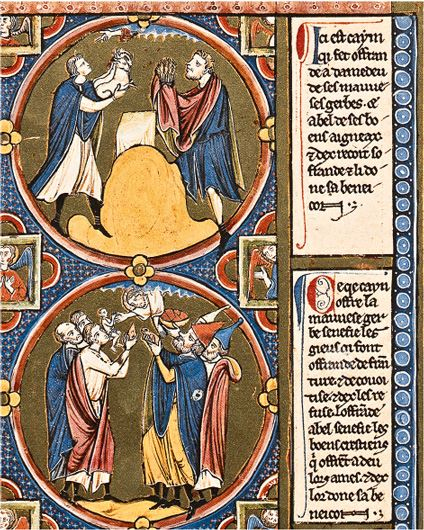 Ici est cayin
qui fet offran
de a damedeu
de ses mauve
ses gerbes. &
abel de ses bo
ens aigneax
& dex recoit so
frande & li do
ne sa benei
con
Ce qe cayn
offre la
mauvese ger
be senefie les
gieus qi font
offrande de
ture & de covoi
tise & dex les re
fuse. loffrade
abel senefie les
boens crestiens
q offrēt a deu
lor ames. & dex
lor done sa be
neicon